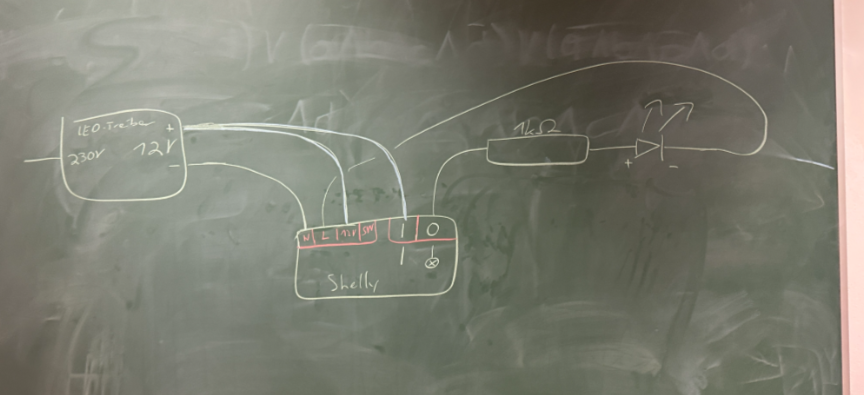 LED-Treiber
+
230V 12V
-
1kΩ
+ -
N L 12V SW I O
I
Shelly